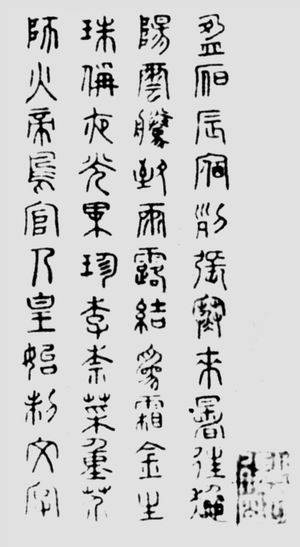 盈昃辰宿列張寒來暑往秋
陽雲騰致雨露結為霜金生
珠稱夜光果珍李柰菜重芥
師火帝鳥官人皇始制文字